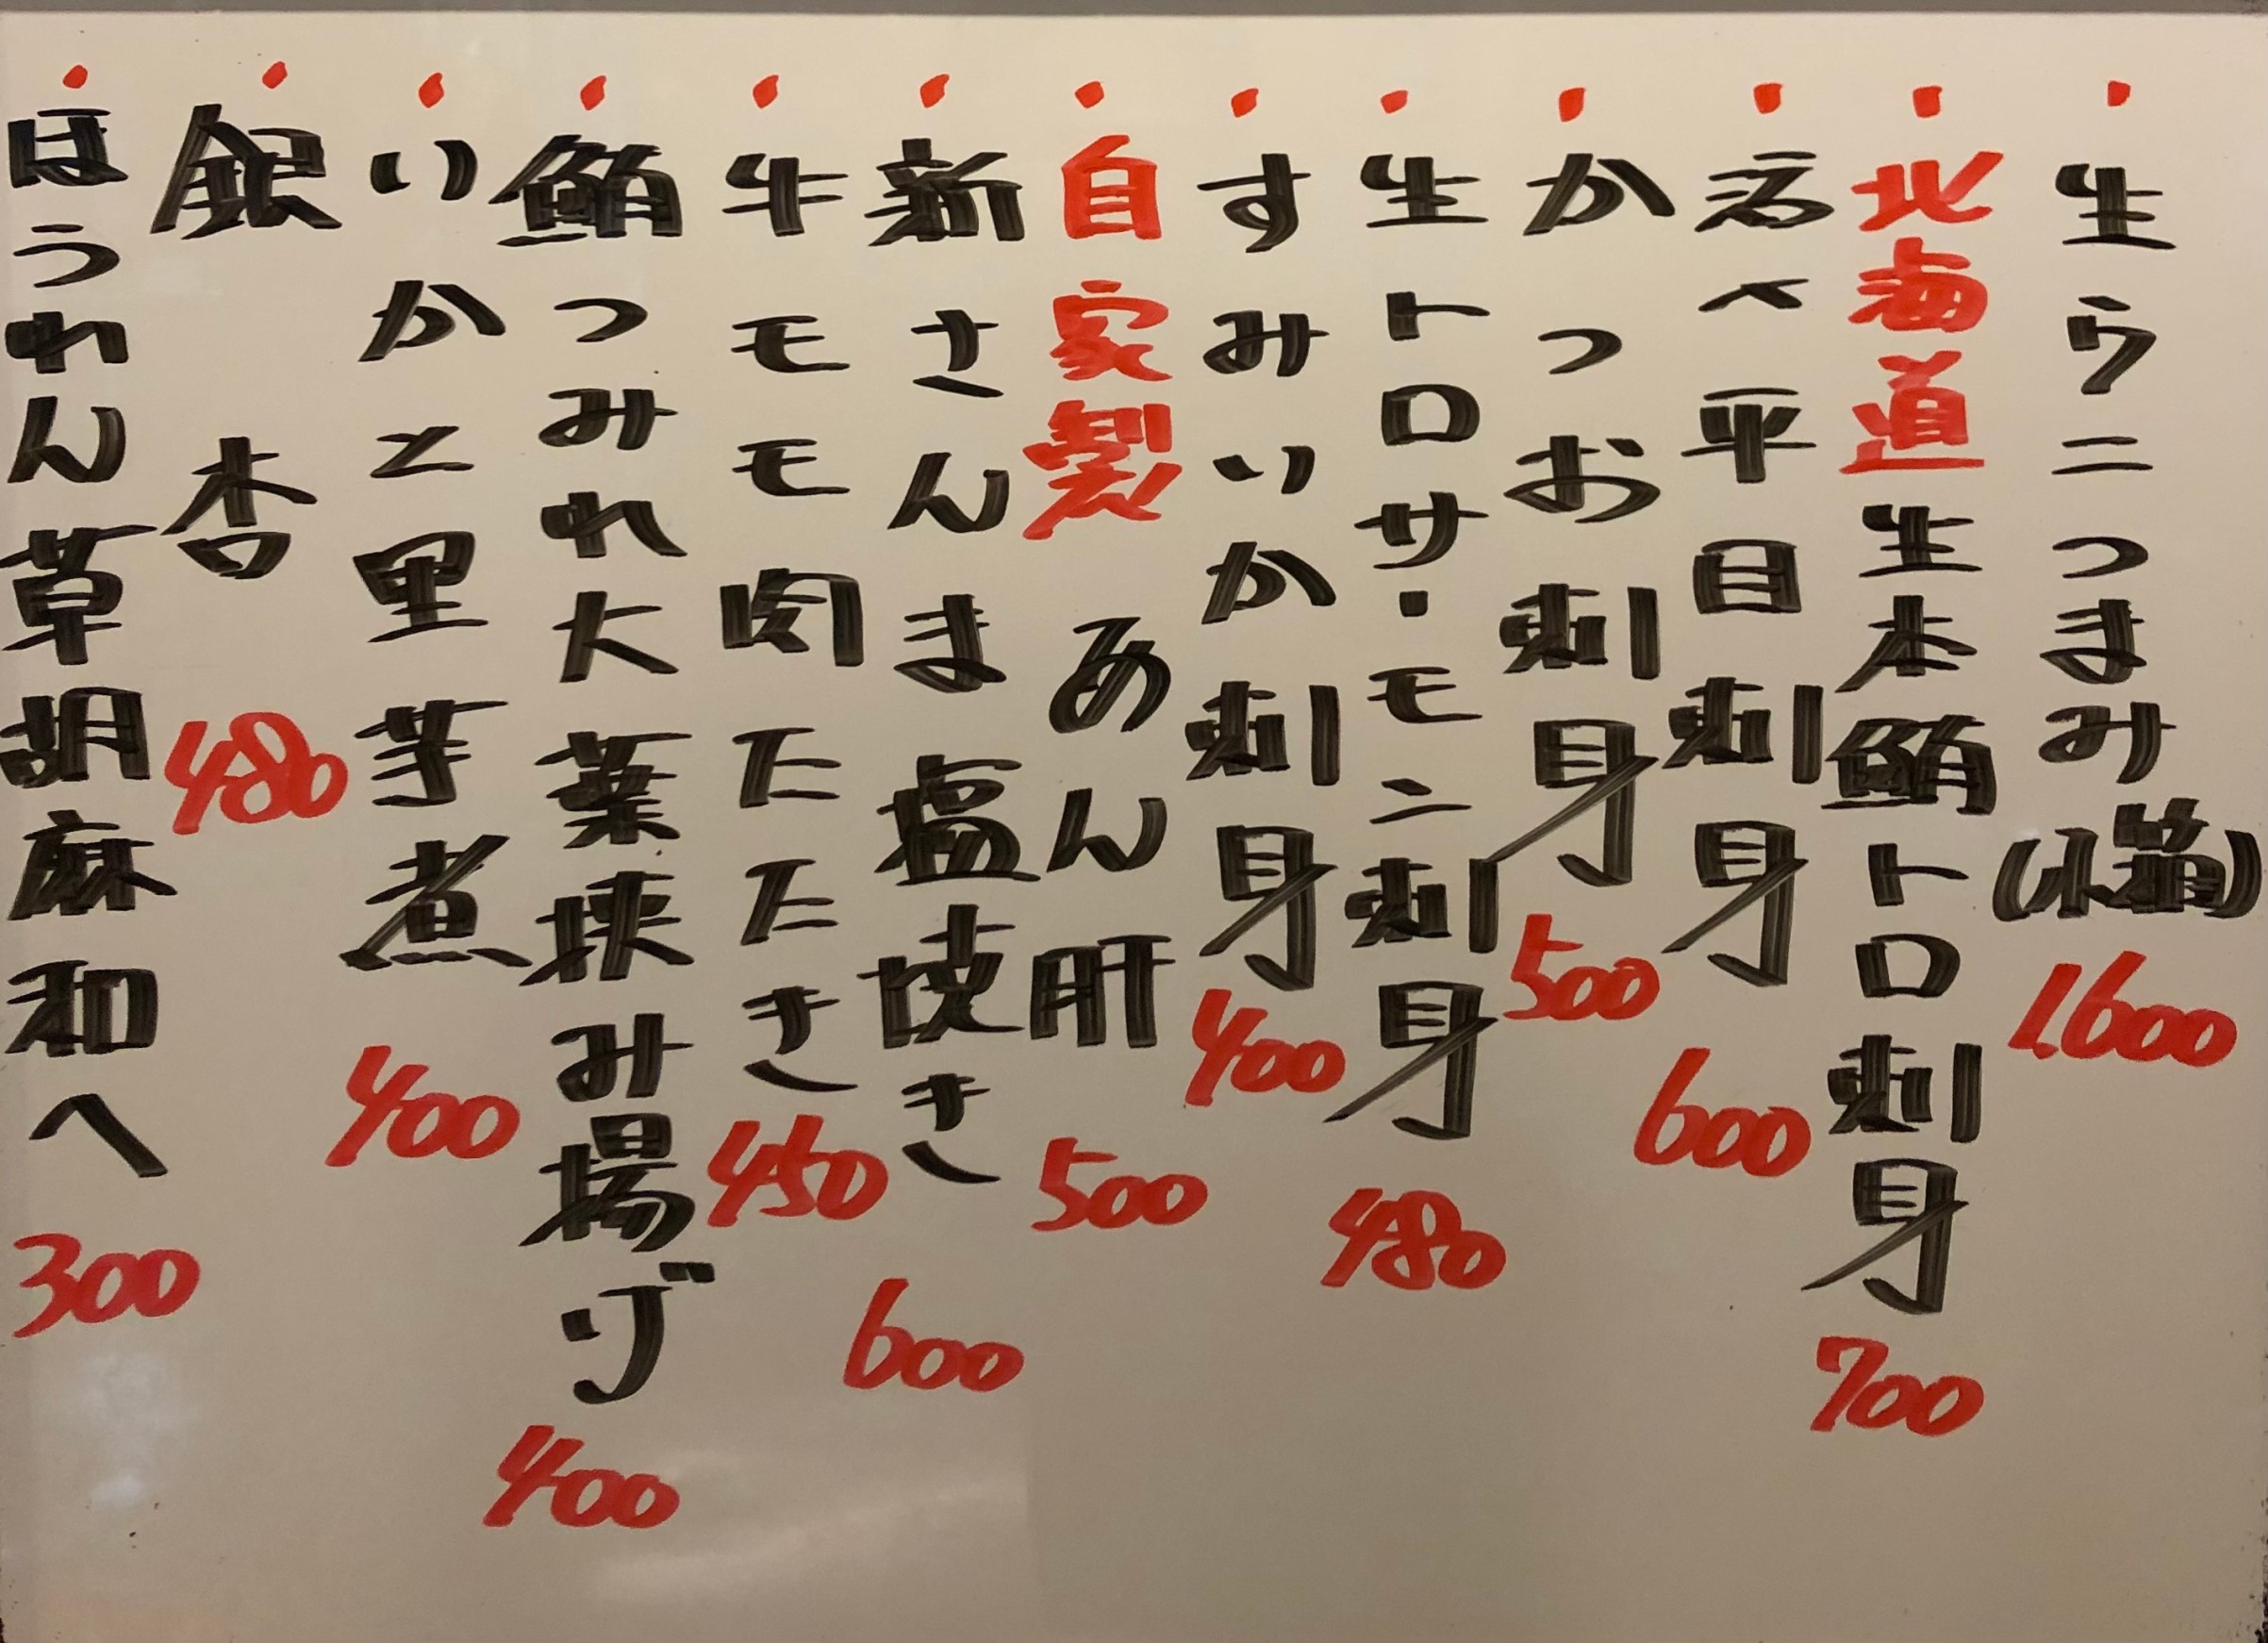 ・生ウニつまみ(木箱) 1600
・北海道生本鮪トロ刺身 700
・活〆平目刺身 600
・かつお刺身 500
・生トロサーモン刺身 480
・すみいか刺身 400
・自家製 あん肝 500
・新さんま塩焼き 600
・牛モモ肉たたき 450
・鮪つみれ大葉挟み揚げ 400
・いかと里芋煮 400
・銀杏 480
・ほうれん草胡麻和へ 300